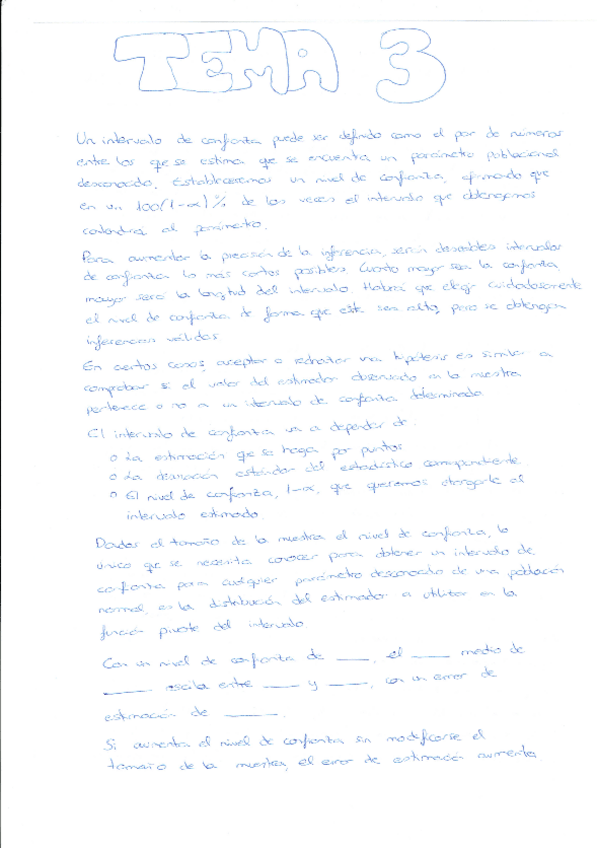 TEMA 3
Un intervalo de confianza puede ser definido como el par de números
entre los que se estima que se encuentra un parámetro poblacional
desconocido. Estableceremos un nivel de confianza, afirmando que
en un 100(1-α)% de las veces el intervalo que obtengamos
contendrá al parámetro.
Para aumentar la precisión de la inferencia, serían deseables intervalos
de confianza lo más cortos posibles. Cuanto mayor sea la confianza
mayor será la longitud del intervalo. Habrá que elegir cuidadosamente
el nivel de confianza de forma que este sea alto, pero se obtengan
inferencias válidas
En ciertos casos, aceptar o rechazar una hipótesis es similar a
comprobar si el valor del estimador observado en la muestra
pertenece o no a un intervalo de confianza determinado.
El intervalo de confianza va a depender de:
o La estimación que se haga por puntos
o La desviación estándar del estadístico correspondiente.
o El nivel de confianza, 1-α, que queramos otorgarle al
intervalo estimado.
Dados el tamaño de la muestra el nivel de confianza, lo
único que se necesita conocer para obtener un intervalo de
confianza para cualquier parámetro desconocido de una población
normal, es la distribución del estimador a utilizar en la
función pivote del intervalo.
Con un nivel de confianza de ____, el ____ medio de
____ oscila entre ____ y ____, con un error de
estimación de ____.
Si aumenta el nivel de confianza sin modificarse el
tamaño de la muestra, el error de estimación aumenta.